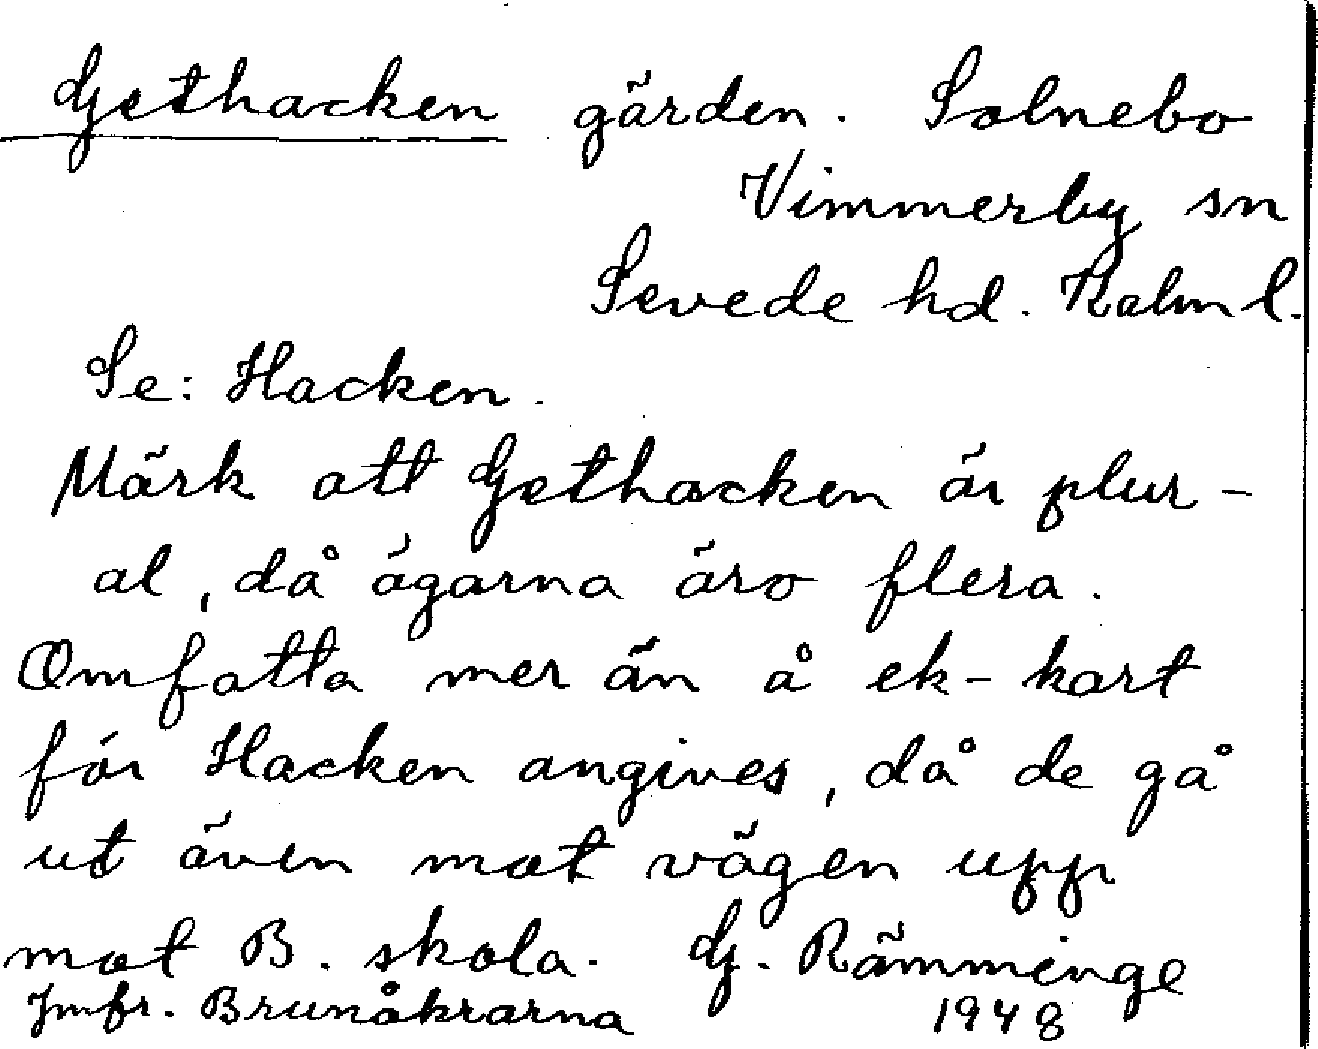 Gethacken gärden. Solnebo
Vimmerby sn
Sevede hd. Kalm l.
Se: Hacken.
Märk att Gethacken är plur-
al, då ägarna äro flera.
Omfatta mer än å ek-kart
för Hacken angives, då de gå
ut även mot vägen upp
mot B. skola. G. Rämminge
Jmfr. Brunåkrarna 1948